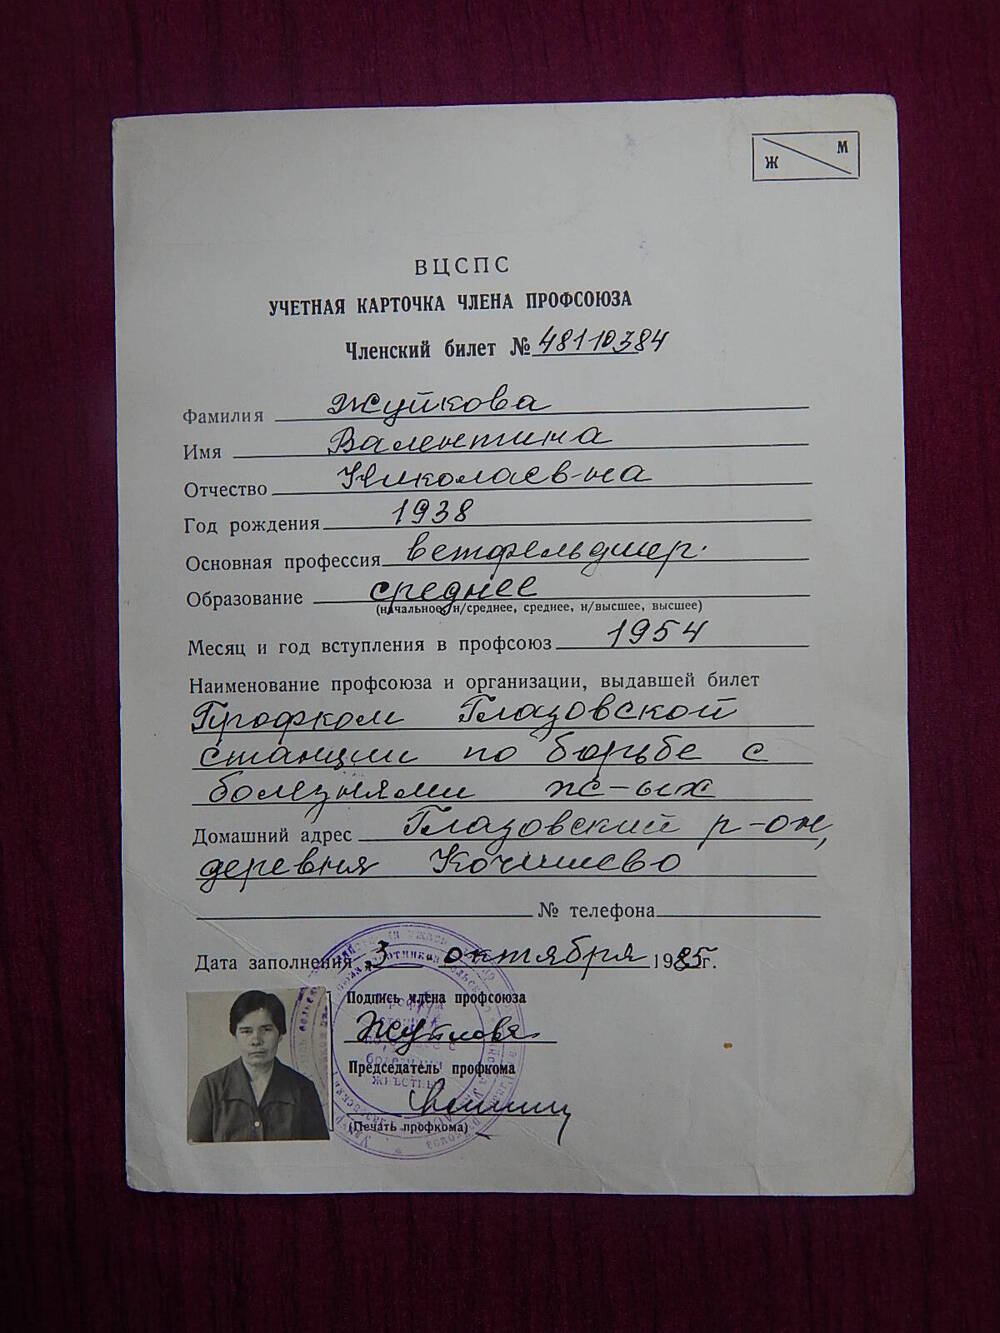 Ж М
ВЦСПС
УЧЕТНАЯ КАРТОЧКА ЧЛЕНА ПРОФСОЮЗА
Членский билет № 48110384
Фамилия Жуйкова
Имя Валентина
Отчество Николаевна
Год рождения 1938
Основная профессия ветфельдшер.
Образование среднее
(начальное, н/среднее, среднее, н/высшее, высшее)
Месяц и год вступления в профсоюз 1954
Наименование профсоюза и организации, выдавшей билет
Профком Глазовской
станции по борьбе с
болезнями ж-ых
Домашний адрес Глазовский р-он,
деревня Кочишево
№ телефона
Дата заполнения 3 октября 1985г.
Подпись члена профсоюза
Жуйкова
Председатель профкома
(Печать профкома)